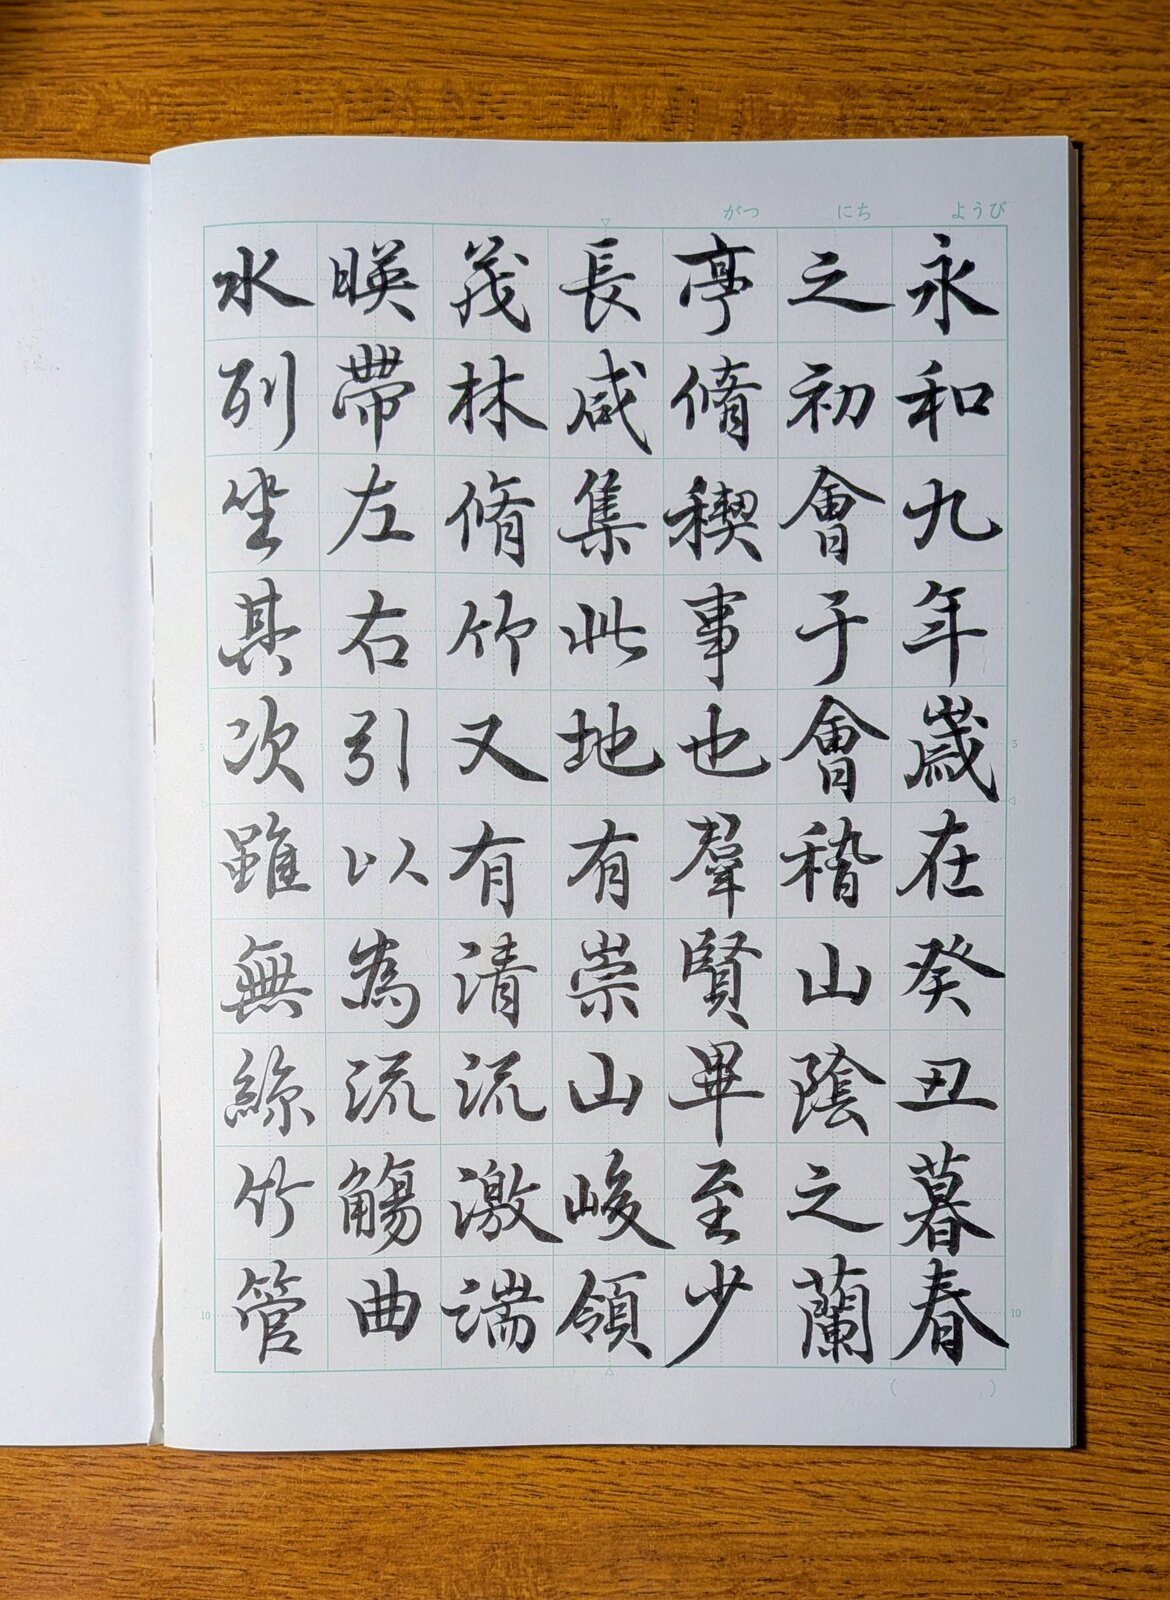 がつ にち ようび
永和九年歲在癸丑暮春
之初會于會稽山陰之蘭
亭脩稧事也羣賢畢至少
長咸集此地有崇山峻領
茂林脩竹又有清流激湍
暎帶左右引以為流觴曲
水列坐其次雖無絲竹管
5
10
5
10
( )